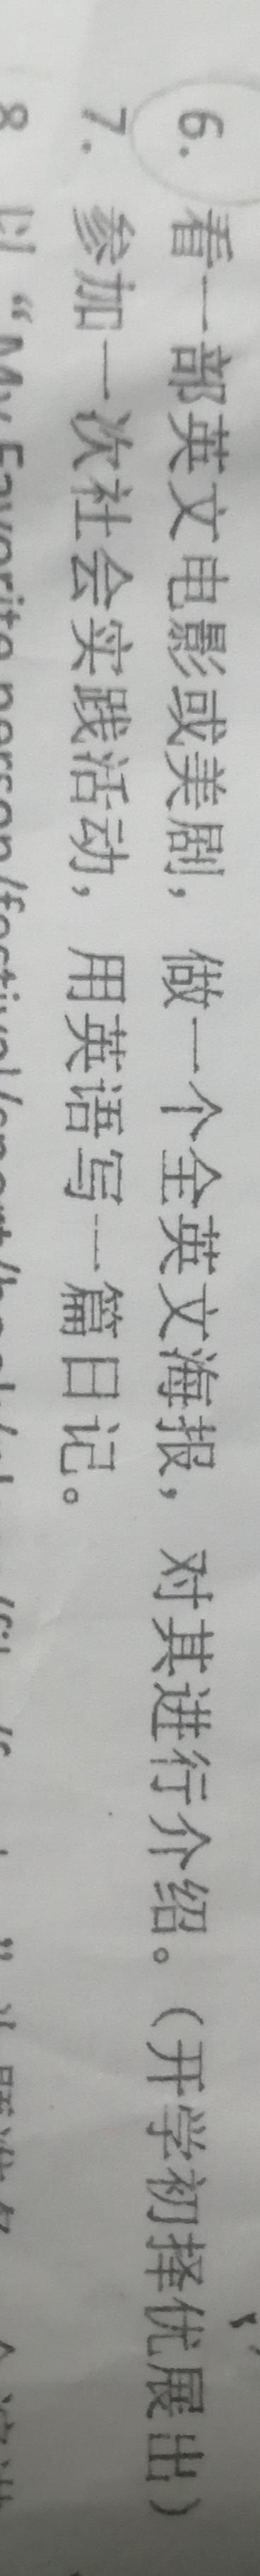 6. 看一部英文电影或美剧，做一个全英文海报，对其进行介绍。（开学初择优展出）
7. 参加一次社会实践活动，用英语写一篇日记。
8 以“My Favorite person/festival/sport/book/